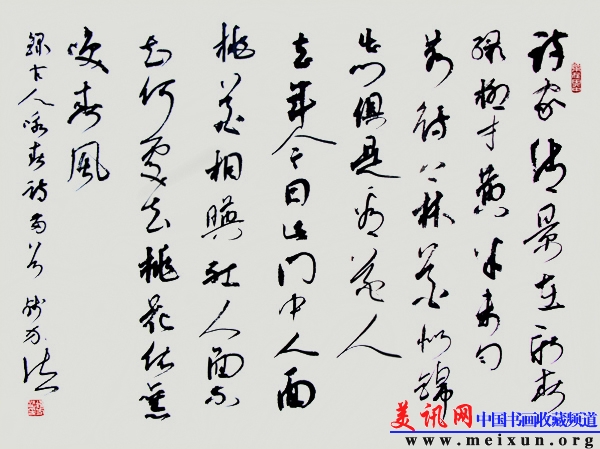 诗家清景在新春
绿柳才黄半未匀
若待上林花似锦
出门俱是看花人
去年今日此门中人面
桃花相暎红人面不
知何处去桃花依舊
笑春风
录古人咏春诗两首
美讯网 中国书画收藏频道
www.meixun.org